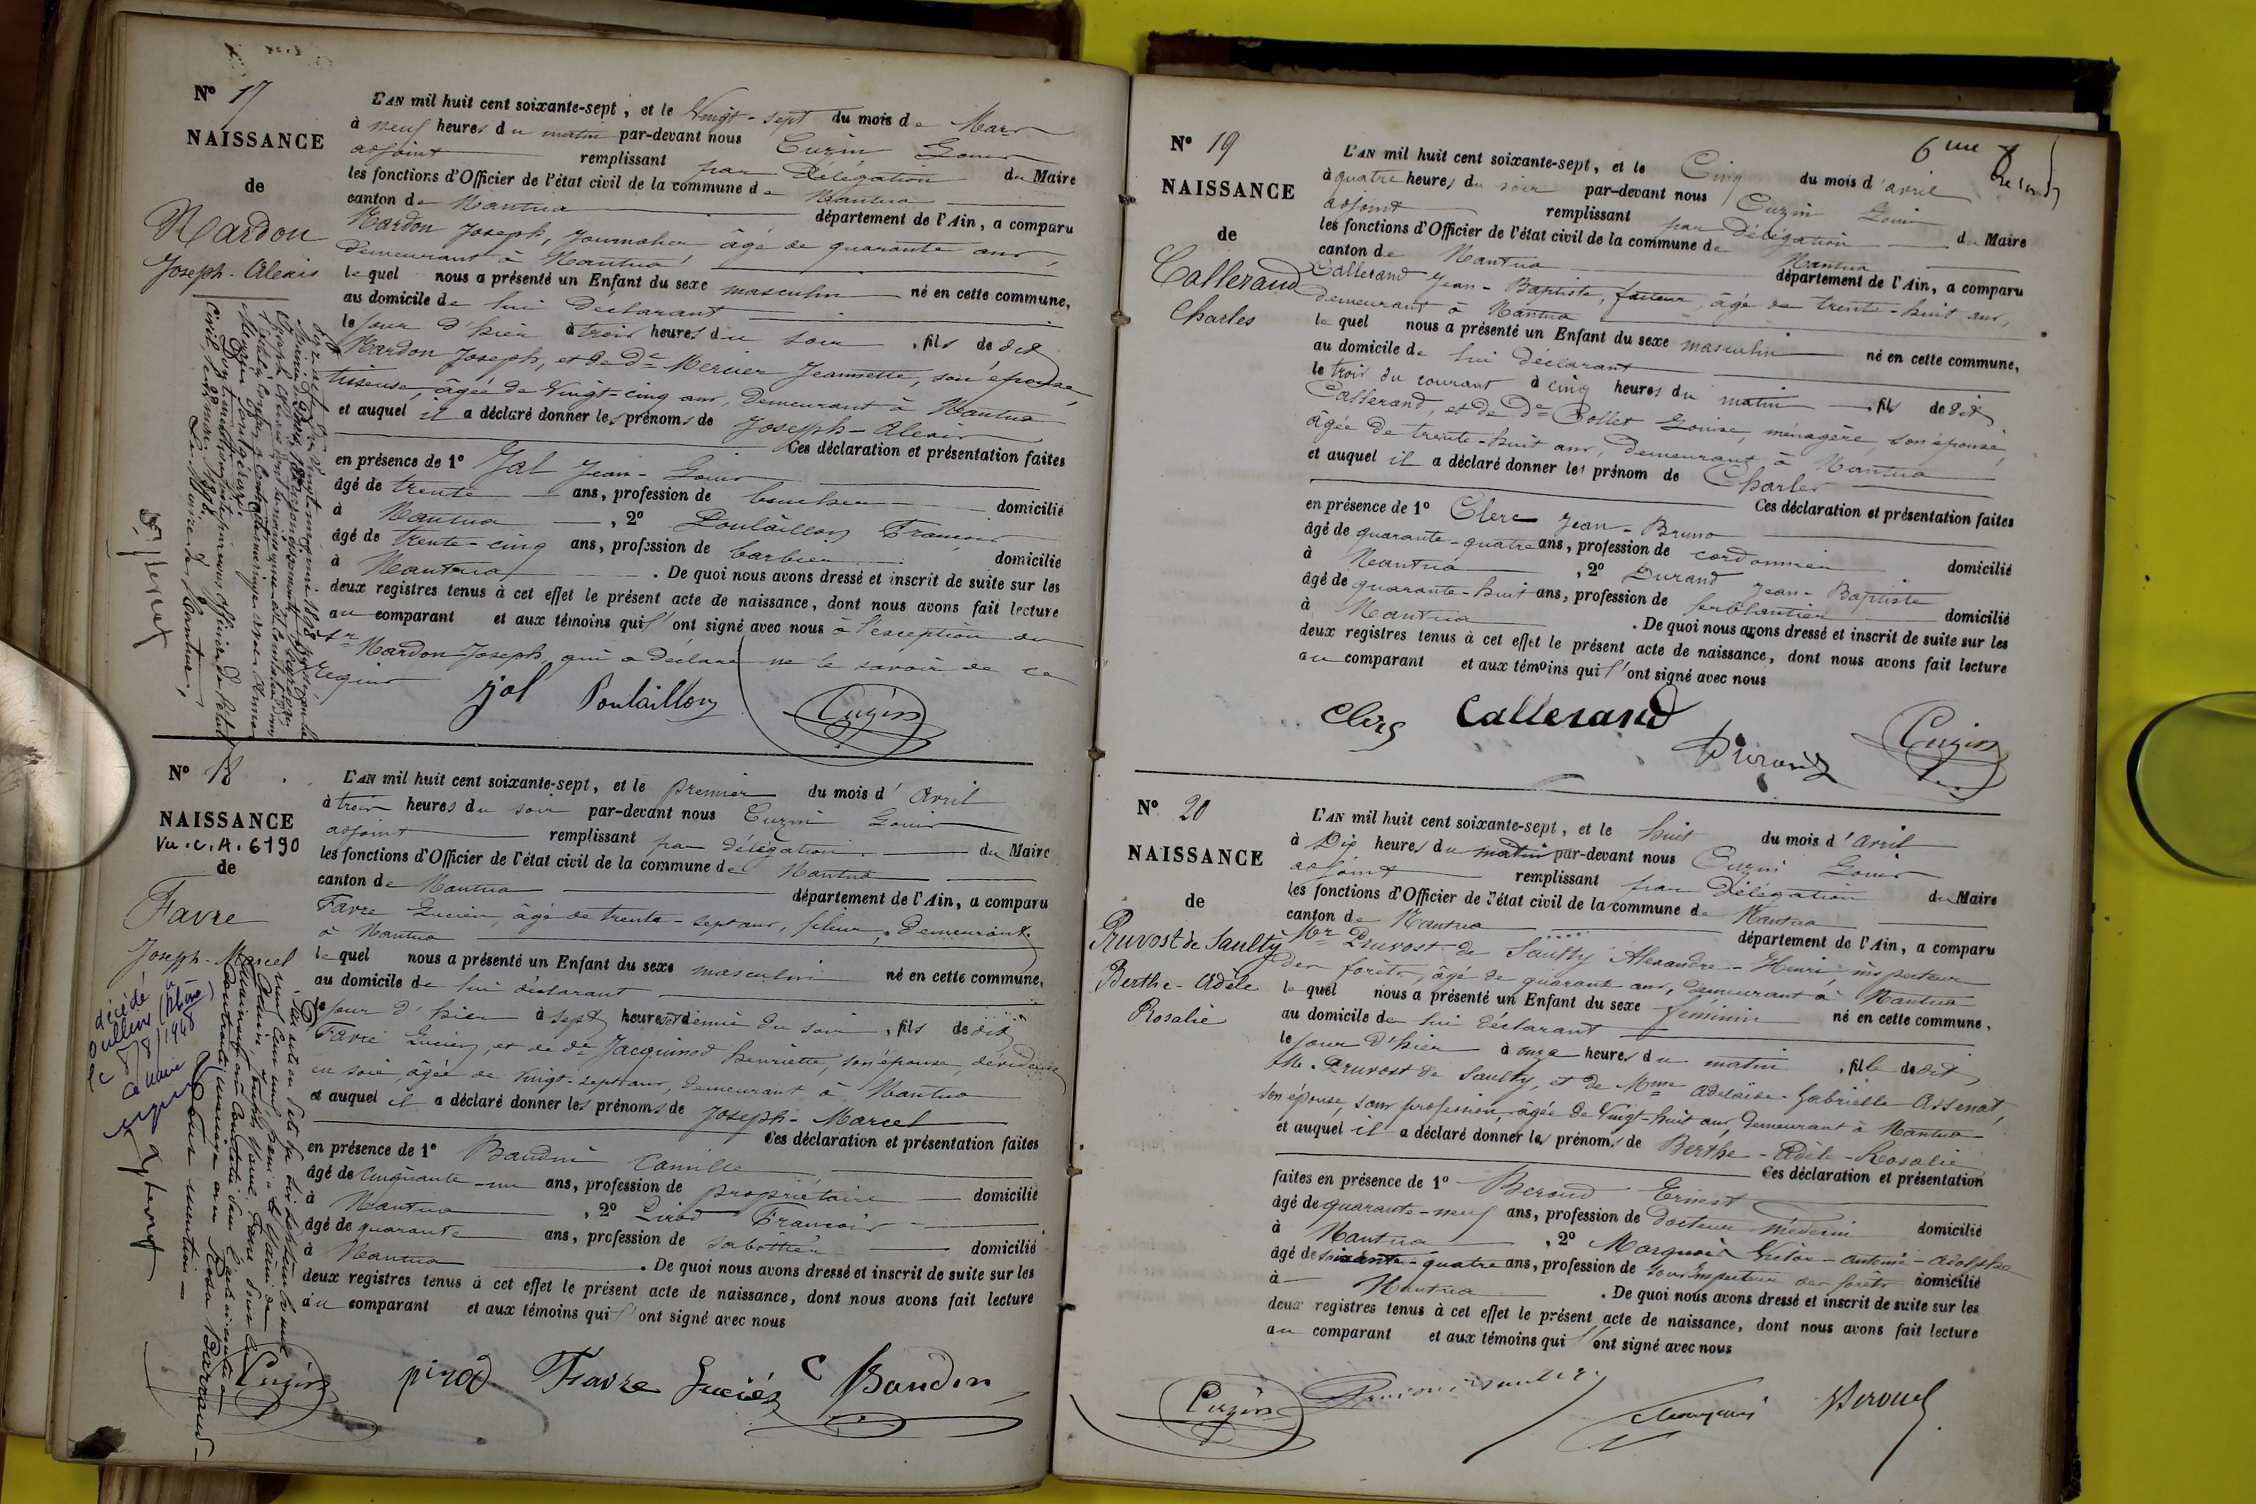 N° 17
NAISSANCE
de
Nardon
Joseph-Alexis
L'AN mil huit cent soixante-sept, et le Vingt-sept du mois de Mars
à neuf heures du matin par-devant nous Cuzin Louis
adjoint remplissant par Délégation du Maire
les fonctions d'Officier de l'état civil de la commune de Nantua
canton de Nantua département de l'Ain, a comparu
Nardon Joseph, Journalier âgé de quarante ans,
demeurant à Nantua,
lequel nous a présenté un Enfant du sexe masculin né en cette commune,
au domicile de lui déclarant
le jour d'hier à trois heures du soir, fils de dit
Nardon Joseph, et de De Mercier Jeannette, son épouse,
tisseuse, âgée de Vingt-cinq ans, demeurant à Nantua
et auquel il a déclaré donner les prénoms de Joseph-Alexis
Ces déclaration et présentation faites
en présence de 1° Jal Jean-Louis
âgé de trente ans, profession de boucher domicilié
à Nantua, 2° Poulaillon François
âgé de trente-cinq ans, profession de barbier domicilié
à Nantua. De quoi nous avons dressé et inscrit de suite sur les
deux registres tenus à cet effet le présent acte de naissance, dont nous avons fait lecture
au comparant et aux témoins qui l'ont signé avec nous à l'exception du
Sr Nardon Joseph, qui a déclaré ne le savoir de ce
requis
jal Poulaillon Cuzin
N° 18
NAISSANCE
Vu.c.A.6190
de
Favre
Joseph-Marcel
décédé à
Oullins (Rhône)
le 8/8/1948
L'AN mil huit cent soixante-sept, et le premier du mois d'Avril
à trois heures du soir par-devant nous Cuzin Louis
adjoint remplissant par délégation du Maire
les fonctions d'Officier de l'état civil de la commune de Nantua
canton de Nantua département de l'Ain, a comparu
Favre Lucien, âgé de trente-sept ans, fileur, demeurant
à Nantua
lequel nous a présenté un Enfant du sexe masculin né en cette commune,
au domicile de lui déclarant
le jour d'hier à sept heures et demie du soir, fils de dit
Favre Lucien, et de de Jacquinod henriette, son épouse, dévideuse
en soie, âgée de vingt-sept ans, demeurant à Nantua
et auquel il a déclaré donner les prénoms de Joseph-Marcel
Ces déclaration et présentation faites
en présence de 1° Baudin Camille
âgé de Cinquante-un ans, profession de propriétaire domicilié
à Nantua, 2° Pirod François
âgé de quarante ans, profession de sabottier domicilié
à Nantua. De quoi nous avons dressé et inscrit de suite sur les
deux registres tenus à cet effet le présent acte de naissance, dont nous avons fait lecture
au comparant et aux témoins qui l'ont signé avec nous
Cuzin pirod Favre Lucien C Baudin
6me
N° 19
NAISSANCE
de
Callerand
Charles
L'AN mil huit cent soixante-sept, et le Cinq du mois d'avril
à quatre heures du soir par-devant nous Cuzin Louis
adjoint remplissant par Délégation du Maire
les fonctions d'Officier de l'état civil de la commune de Nantua
canton de Nantua département de l'Ain, a comparu
Callerand Jean-Baptiste, facteur, âgé de trente-huit ans,
demeurant à Nantua
lequel nous a présenté un Enfant du sexe masculin né en cette commune,
au domicile de lui déclarant
le trois du courant à cinq heures du matin, fils de dit
Callerand, et de De Bollet Louise, ménagère, son épouse,
âgée de trente-huit ans, demeurant à Nantua
et auquel il a déclaré donner les prénom de Charles
Ces déclaration et présentation faites
en présence de 1° Clerc Jean-Bruno
âgé de quarante-quatre ans, profession de cordonnier domicilié
à Nantua, 2° Durand Jean-Baptiste
âgé de quarante-huit ans, profession de ferblantier domicilié
à Nantua. De quoi nous avons dressé et inscrit de suite sur les
deux registres tenus à cet effet le présent acte de naissance, dont nous avons fait lecture
au comparant et aux témoins qui l'ont signé avec nous
Clerc Callerand Durand Cuzin
N° 20
NAISSANCE
de
Pruvost de Saulty
Berthe-Adèle
Rosalie
L'AN mil huit cent soixante-sept, et le huit du mois d'Avril
à Dix heures du matin par-devant nous Cuzin Louis
adjoint remplissant par Délégation du Maire
les fonctions d'Officier de l'état civil de la commune de Nantua
canton de Nantua département de l'Ain, a comparu
Mr Pruvost de Saulty Alexandre-Henri inspecteur
des forêts, âgé de quarante ans, demeurant à Nantua
lequel nous a présenté un Enfant du sexe féminin né en cette commune,
au domicile de lui déclarant
le jour d'hier à onze heures du matin, fille de dit
Mr. Pruvost de Saulty, et de Mme Adelaïde-Gabrielle Assenat,
son épouse, sans profession, âgée de Vingt-huit ans, demeurant à Nantua
et auquel il a déclaré donner les prénoms de Berthe-Adèle-Rosalie
Ces déclaration et présentation
faites en présence de 1° Beroud Ernest
âgé de quarante-neuf ans, profession de docteur médecin domicilié
à Nantua, 2° Marquois Victor-Antoine-Adolphe
âgé de soixante-quatre ans, profession de Sous Inspecteur des forêts domicilié
à Nantua. De quoi nous avons dressé et inscrit de suite sur les
deux registres tenus à cet effet le présent acte de naissance, dont nous avons fait lecture
au comparant et aux témoins qui l'ont signé avec nous
Cuzin Beroud